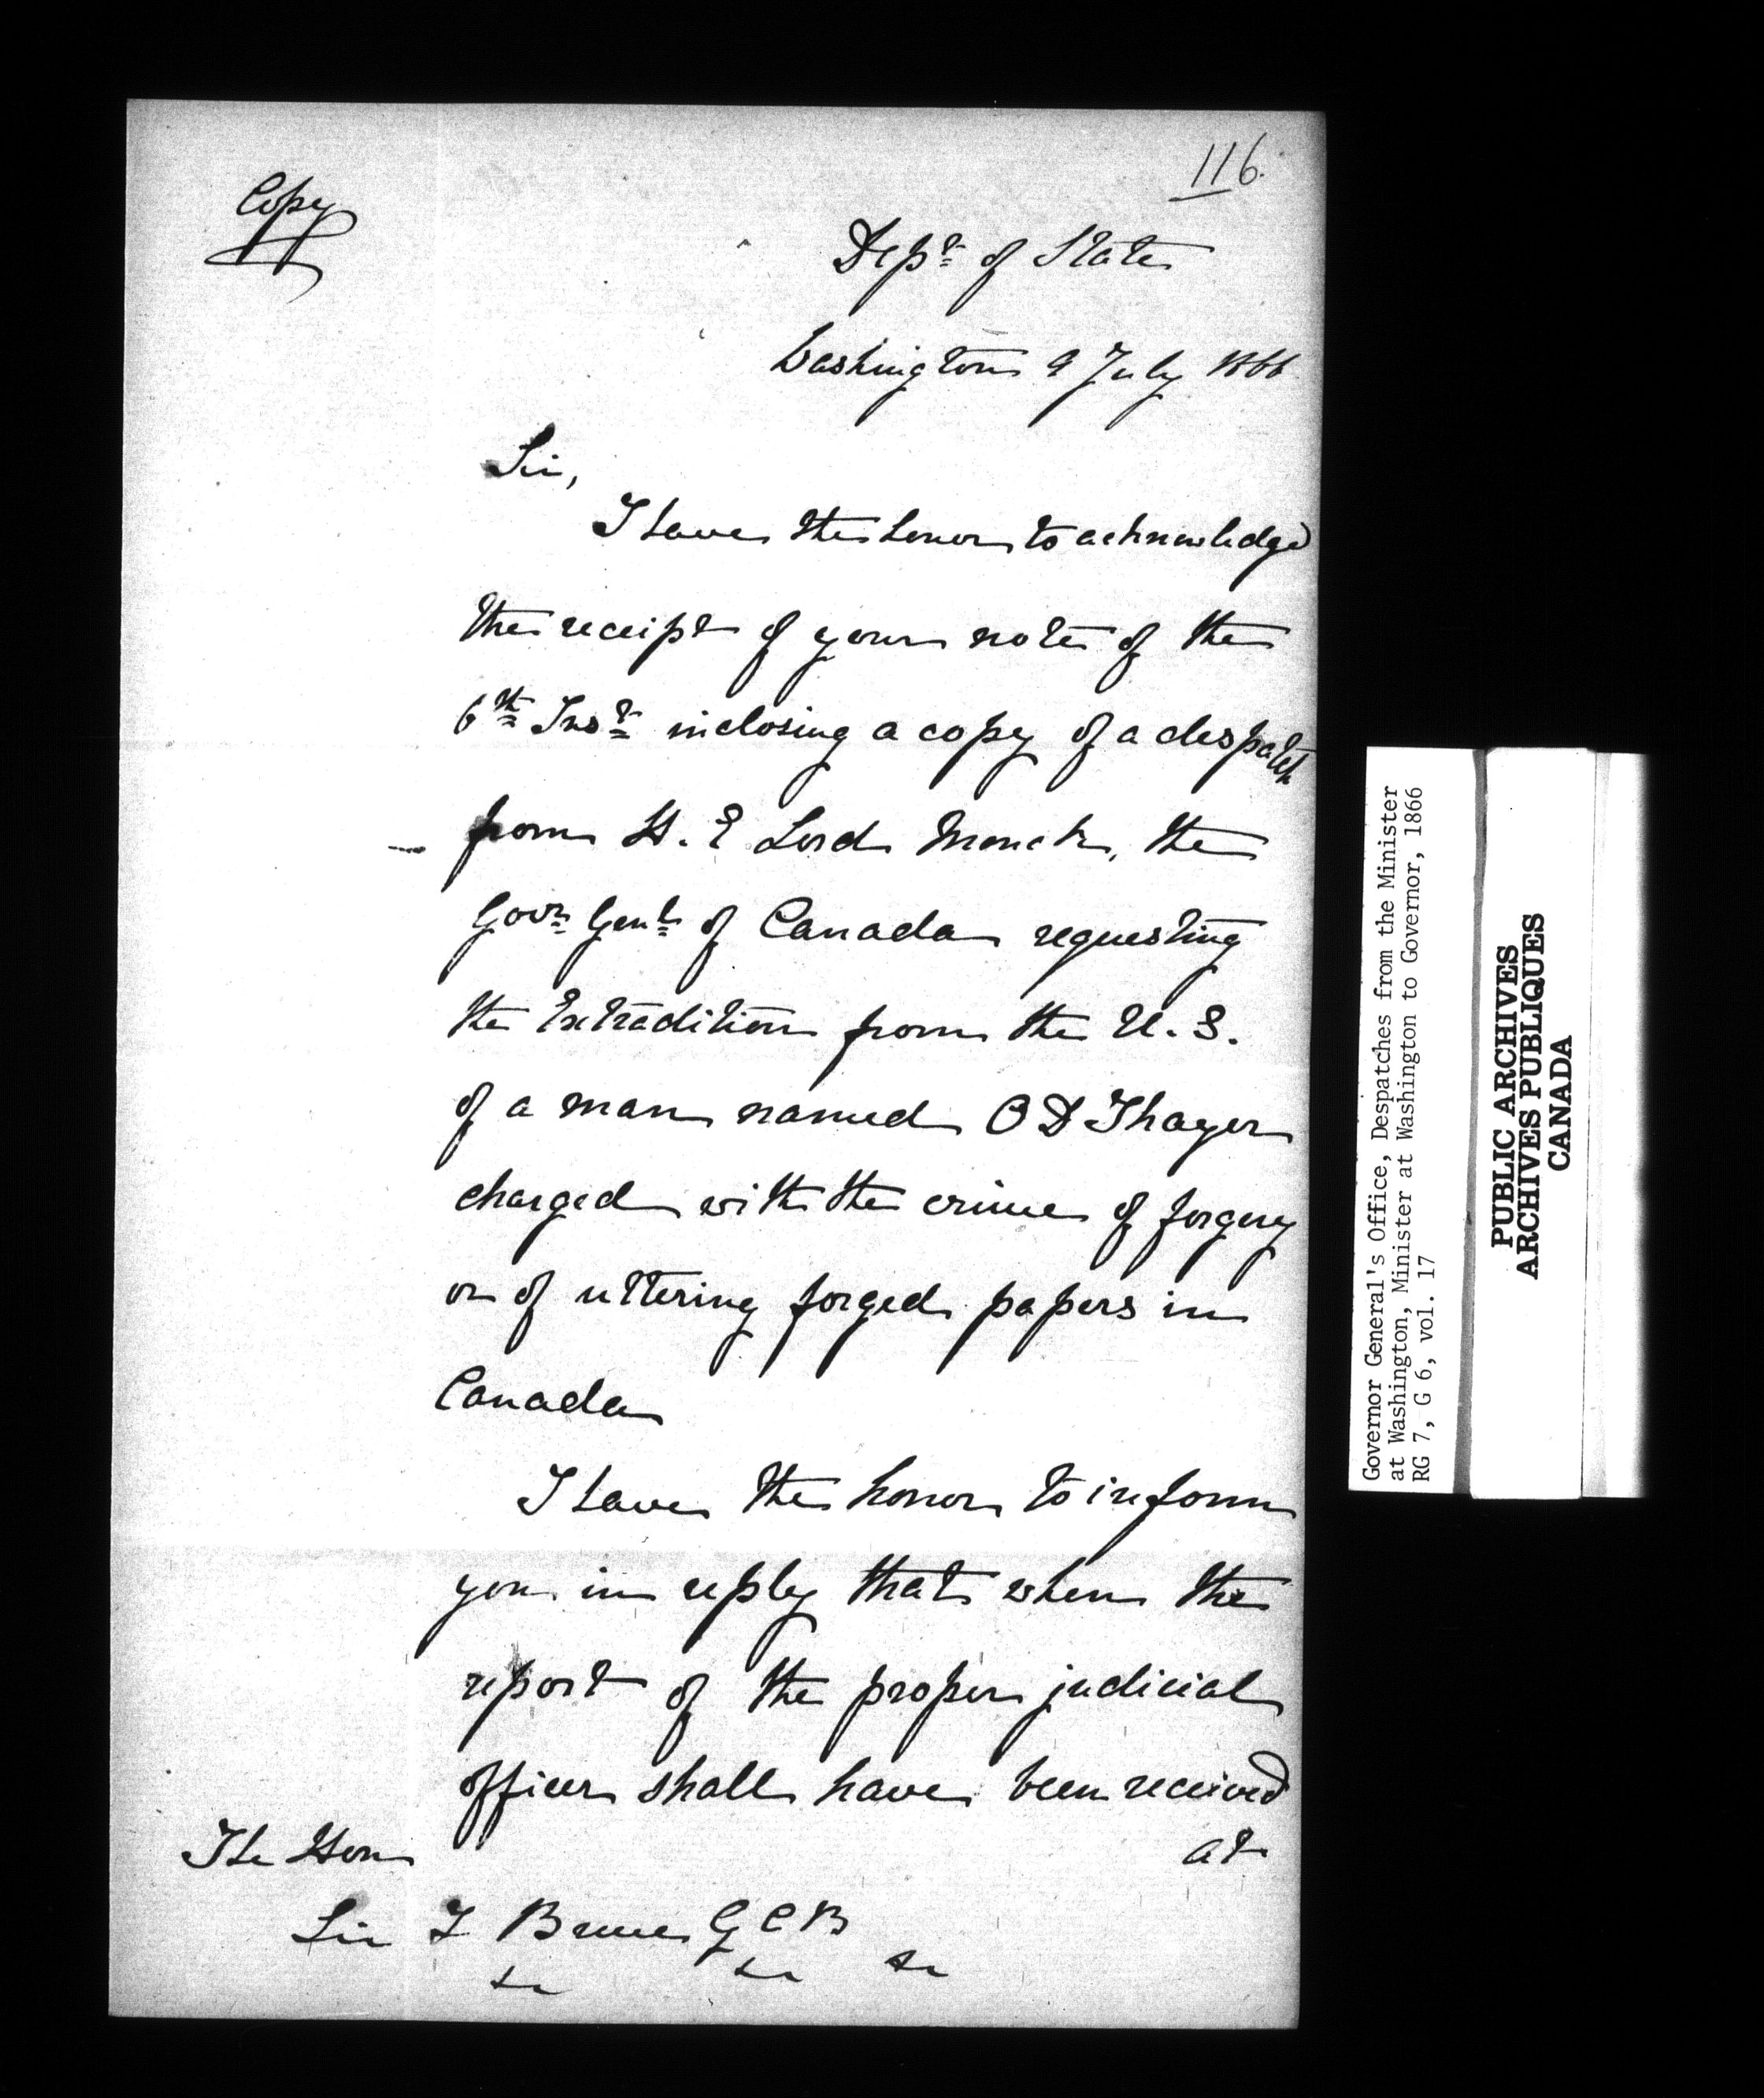 116.
Copy
Dept of State
Washington 9 July 1866
Sir,
I have the honor to acknowledge
the receipt of your note of the
6th Inst inclosing a copy of a despatch
from H. E Lord Monck, the
Govr Genl of Canada requesting
the Extradition from the U. S.
of a man named O D Thayer
charged with the crime of forgery
or of uttering forged papers in
Canada
I have the honor to inform
you in reply that when the
report of the proper judicial
officer shall have been received
at
The Hon
Sir F Bruce G C B
&c &c &c
Governor General's Office, Despatches from the Minister
at Washington, Minister at Washington to Governor, 1866
RG 7, G 6, vol. 17
PUBLIC ARCHIVES
ARCHIVES PUBLIQUES
CANADA